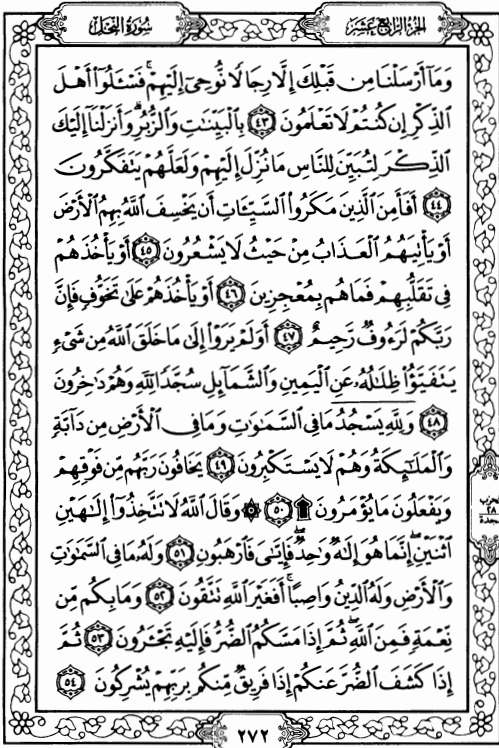 سُورَةُ النَّحۡل
الجزء الرابع عشر
وَمَآ أَرۡسَلۡنَا مِن قَبۡلِكَ إِلَّا رِجَالٗا نُّوحِيٓ إِلَيۡهِمۡۖ فَسۡـَٔلُوٓاْ أَهۡلَ
ٱلذِّكۡرِ إِن كُنتُمۡ لَا تَعۡلَمُونَ ٤٣ بِٱلۡبَيِّنَٰتِ وَٱلزُّبُرِۗ وَأَنزَلۡنَآ إِلَيۡكَ
ٱلذِّكۡرَ لِتُبَيِّنَ لِلنَّاسِ مَا نُزِّلَ إِلَيۡهِمۡ وَلَعَلَّهُمۡ يَتَفَكَّرُونَ
٤٤ أَفَأَمِنَ ٱلَّذِينَ مَكَرُواْ ٱلسَّيِّـَٔاتِ أَن يَخۡسِفَ ٱللَّهُ بِهِمُ ٱلۡأَرۡضَ
أَوۡ يَأۡتِيَهُمُ ٱلۡعَذَابُ مِنۡ حَيۡثُ لَا يَشۡعُرُونَ ٤٥ أَوۡ يَأۡخُذَهُمۡ
فِي تَقَلُّبِهِمۡ فَمَا هُم بِمُعۡجِزِينَ ٤٦ أَوۡ يَأۡخُذَهُمۡ عَلَىٰ تَخَوُّفٖ فَإِنَّ
رَبَّكُمۡ لَرَءُوفٞ رَّحِيمٌ ٤٧ أَوَلَمۡ يَرَوۡاْ إِلَىٰ مَا خَلَقَ ٱللَّهُ مِن شَيۡءٖ
يَتَفَيَّؤُاْ ظِلَٰلُهُۥ عَنِ ٱلۡيَمِينِ وَٱلشَّمَآئِلِ سُجَّدٗا لِّلَّهِ وَهُمۡ دَٰخِرُونَ
٤٨ وَلِلَّهِۤ يَسۡجُدُۤ مَا فِي ٱلسَّمَٰوَٰتِ وَمَا فِي ٱلۡأَرۡضِ مِن دَآبَّةٖ
وَٱلۡمَلَٰٓئِكَةُ وَهُمۡ لَا يَسۡتَكۡبِرُونَ ٤٩ يَخَافُونَ رَبَّهُم مِّن فَوۡقِهِمۡ
وَيَفۡعَلُونَ مَا يُؤۡمَرُونَ ۩ ٥٠ ۞ وَقَالَ ٱللَّهُ لَا تَتَّخِذُوٓاْ إِلَٰهَيۡنِ
ٱثۡنَيۡنِۖ إِنَّمَا هُوَ إِلَٰهٞ وَٰحِدٞ فَإِيَّٰيَ فَٱرۡهَبُونِ ٥١ وَلَهُۥ مَا فِي ٱلسَّمَٰوَٰتِ
وَٱلۡأَرۡضِ وَلَهُ ٱلدِّينُ وَاصِبًاۚ أَفَغَيۡرَ ٱللَّهِ تَتَّقُونَ ٥٢ وَمَا بِكُم مِّن
نِّعۡمَةٖ فَمِنَ ٱللَّهِۖ ثُمَّ إِذَا مَسَّكُمُ ٱلضُّرُّ فَإِلَيۡهِ تَجۡـَٔرُونَ ٥٣ ثُمَّ
إِذَا كَشَفَ ٱلضُّرَّ عَنكُمۡ إِذَا فَرِيقٞ مِّنكُم بِرَبِّهِمۡ يُشۡرِكُونَ ٥٤
حزب
٢٨
سجدة
٢٧٢